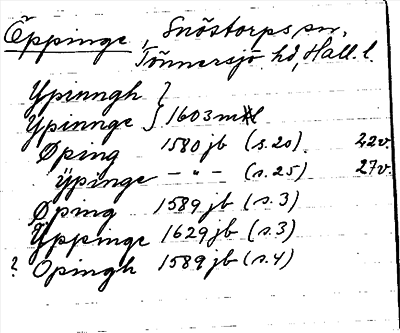 Öppinge, Snöstorps sn,
Tönnersjö hd, Hall. l.
Ypinngh }
Ypinnge } 1603 mtl
Øping 1580 jb (s. 20) 22v.
Ÿpinge – " – (s. 25) 27v.
Øping 1589 jb (s. 3)
Ÿppinge 1629 jb (s. 3)
? Opingh 1589 jb (s. 4)